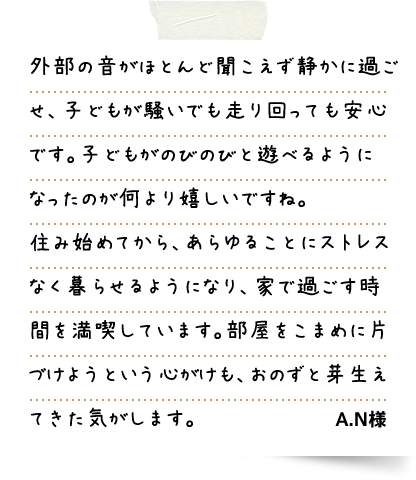 外部の音がほとんど聞こえず静かに過ご
せ、子どもが騒いでも走り回っても安心
です。子どもがのびのびと遊べるように
なったのが何より嬉しいですね。
住み始めてから、あらゆることにストレス
なく暮らせるようになり、家で過ごす時
間を満喫しています。部屋をこまめに片
づけようという心がけも、おのずと芽生え
てきた気がします。 A.N様